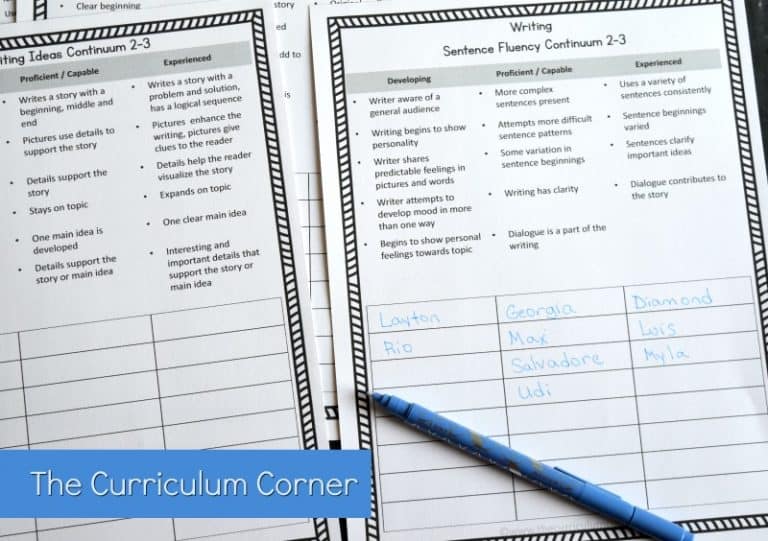 Clear beginning
story
dd to
is
ting Ideas Continuum 2-3
Proficient / Capable
Experienced
Writes a story with a
beginning, middle and
end
Pictures use details to
support the story
Details support the
story
Stays on topic
One main idea is
developed
Details support the
story or main idea
Writes a story with a
problem and solution,
has a logical sequence
Pictures enhance the
writing, pictures give
clues to the reader
Details help the reader
visualize the story
Expands on topic
One clear main idea
Interesting and
important details that
support the story or
main idea
Writing
Sentence Fluency Continuum 2-3
Developing
Proficient / Capable
Experienced
Writer aware of a
general audience
Writing begins to show
personality
Writer shares
predictable feelings in
pictures and words
Writer attempts to
develop mood in more
than one way
Begins to show personal
feelings towards topic
More complex
sentences present
Attempts more difficult
sentence patterns
Some variation in
sentence beginnings
Writing has clarity
Dialogue is a part of the
writing
Uses a variety of
sentences consistently
Sentence beginnings
varied
Sentences clarify
important ideas
Dialogue contributes to
the story
Layton
Georgia
Diamond
Rio
Max
Luis
Salvadore
Myla
Udi
The Curriculum Corner